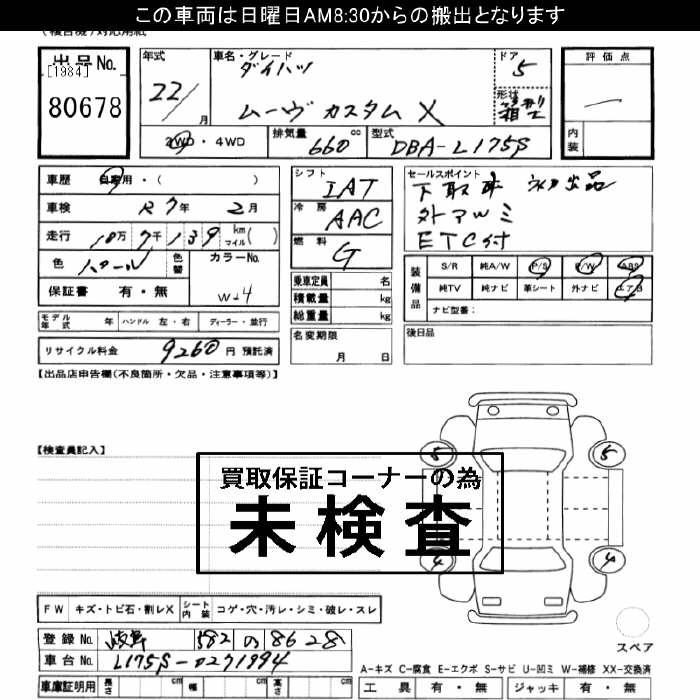 この車両は日曜日AM8:30からの搬出となります
出品No.
[1984]
80678
年式
22/
月
車名・グレード
ダイハツ
ムーヴ カスタム X
ドア
5
形状
箱型
評価点
—
内装
2WD・4WD
排気量
660
cc
型式
DBA-L175S
車歴
自家用・( )
車検
R7年 2月
走行
10万7千139
km
マイル( )
色
パール
色替
カラーNo.
W-4
保証書
有・無
シフト
IAT
冷房
AAC
燃料
G
乗車定員
名
積載量
kg
総重量
kg
セールスポイント
下取車 初出品
外アルミ
ETC付
装備品
S/R
純A/W
P/S
P/W
ABS
純TV
純ナビ
革シート
外ナビ
エアB
ナビ型番:
モデル年式
年
ハンドル
左・右
ディーラー・並行
名変期限
月 日
後日品
リサイクル料金
9260
円 預託済
【出品店申告欄(不良箇所・欠品・注意事項等)】
【検査員記入】
買取保証コーナーの為
未検査
5
5
4
4
スペア
FW
キズ・トビ石・割レX
シート内装
コゲ・穴・汚レ・シミ・破レ・スレ
登録No.
岐阜 582 の 8628
車台No.
L175S-0271994
A-キズ C-腐食 E-エクボ S-サビ U-凹ミ W-補修 XX-交換済
車庫証明用
長さ
cm
幅
cm
高さ
cm
工具
有・無
ジャッキ
有・無